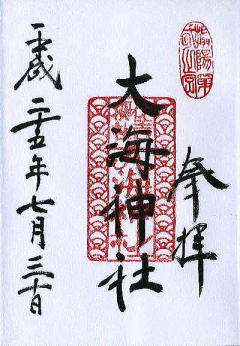 奉拝
大海神社
平成二十五年七月三十日